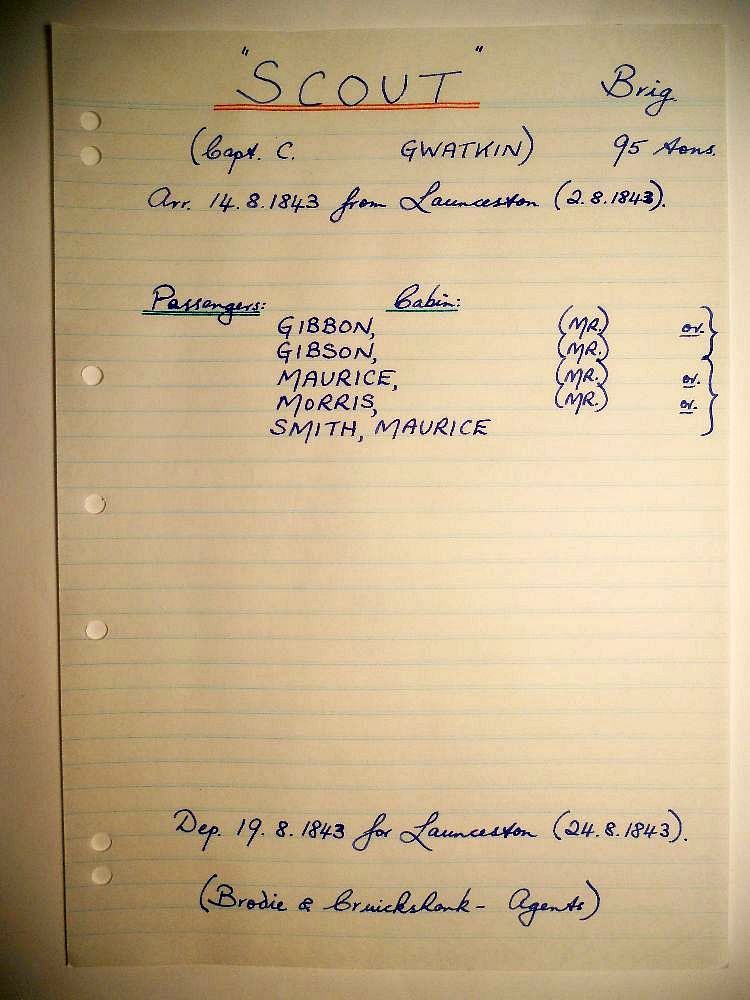 "SCOUT" Brig
(Capt. C. GWATKIN) 95 tons.
Arr. 14.8.1843 from Launceston (2.8.1843).
Passengers: Cabin:
GIBBON, (MR.) or. }
GIBSON, (MR.)
MAURICE, (MR.) or. }
MORRIS, (MR.) or.
SMITH, MAURICE
Dep. 19.8.1843 for Launceston (24.8.1843).
(Brodie & Cruickshank - Agents)